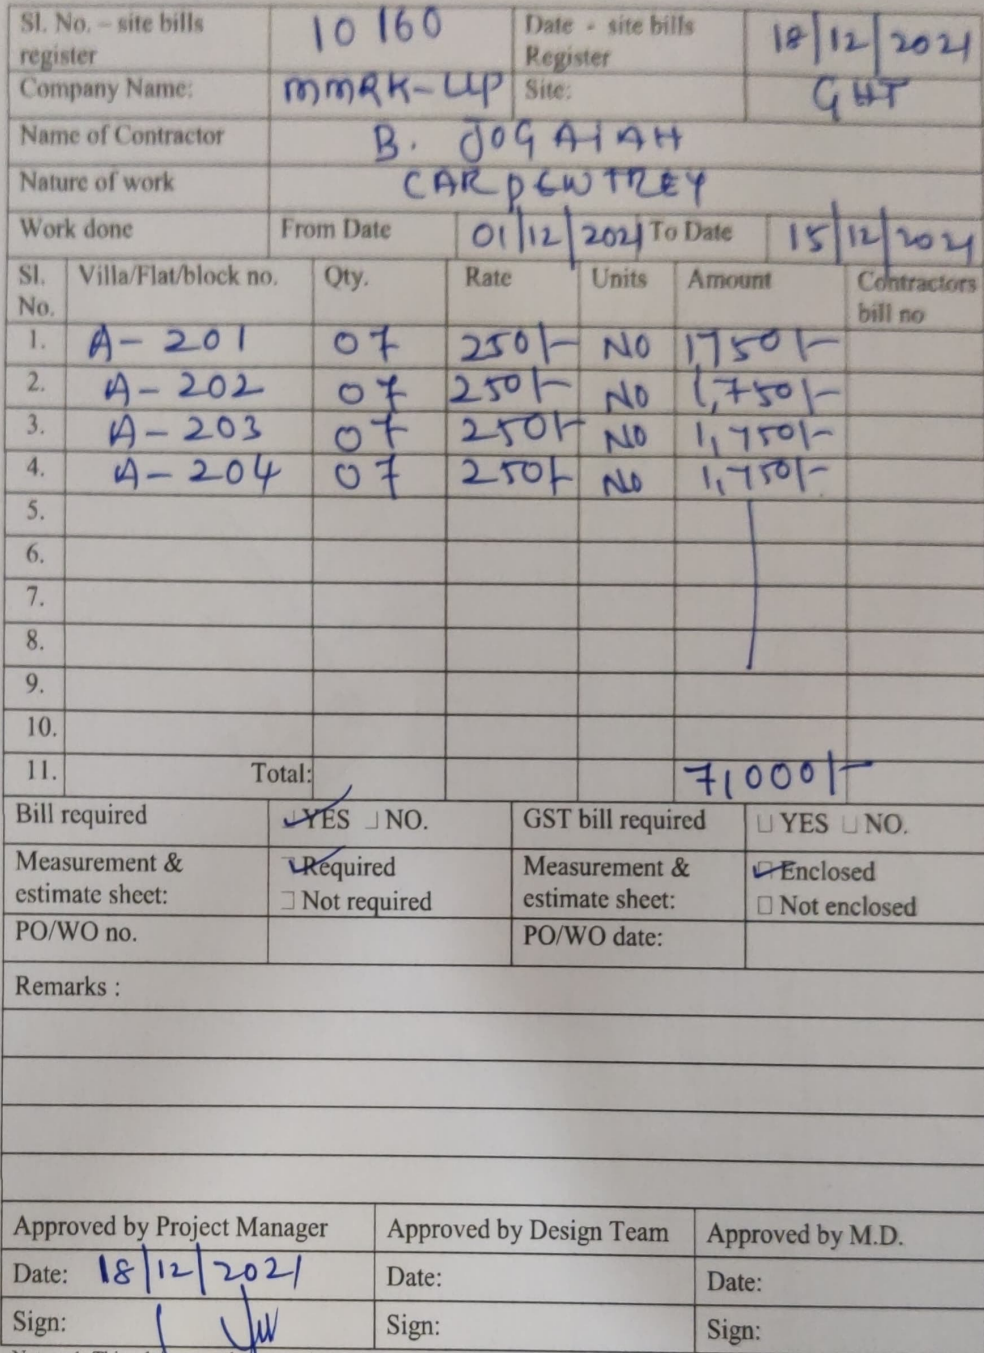 Sl. No. – site bills register 10160 Date - site bills Register 18/12/2021
Company Name: MMRK-LLP Site: GHT
Name of Contractor B. JOGAIAH
Nature of work CARPENTREY
Work done From Date 01/12/2021 To Date 15/12/2021
Sl. No. Villa/Flat/block no. Qty. Rate Units Amount Contractors bill no
1. A-201 07 250/- NO 1,750/-
2. A-202 07 250/- NO 1,750/-
3. A-203 07 250/- NO 1,750/-
4. A-204 07 250/- NO 1,750/-
5.
6.
7.
8.
9.
10.
11. Total: 7,000/-
Bill required YES NO. GST bill required YES NO.
Measurement & estimate sheet: Required Not required Measurement & estimate sheet: Enclosed Not enclosed
PO/WO no. PO/WO date:
Remarks :
Approved by Project Manager Approved by Design Team Approved by M.D.
Date: 18/12/2021 Date: Date:
Sign: Sign: Sign: